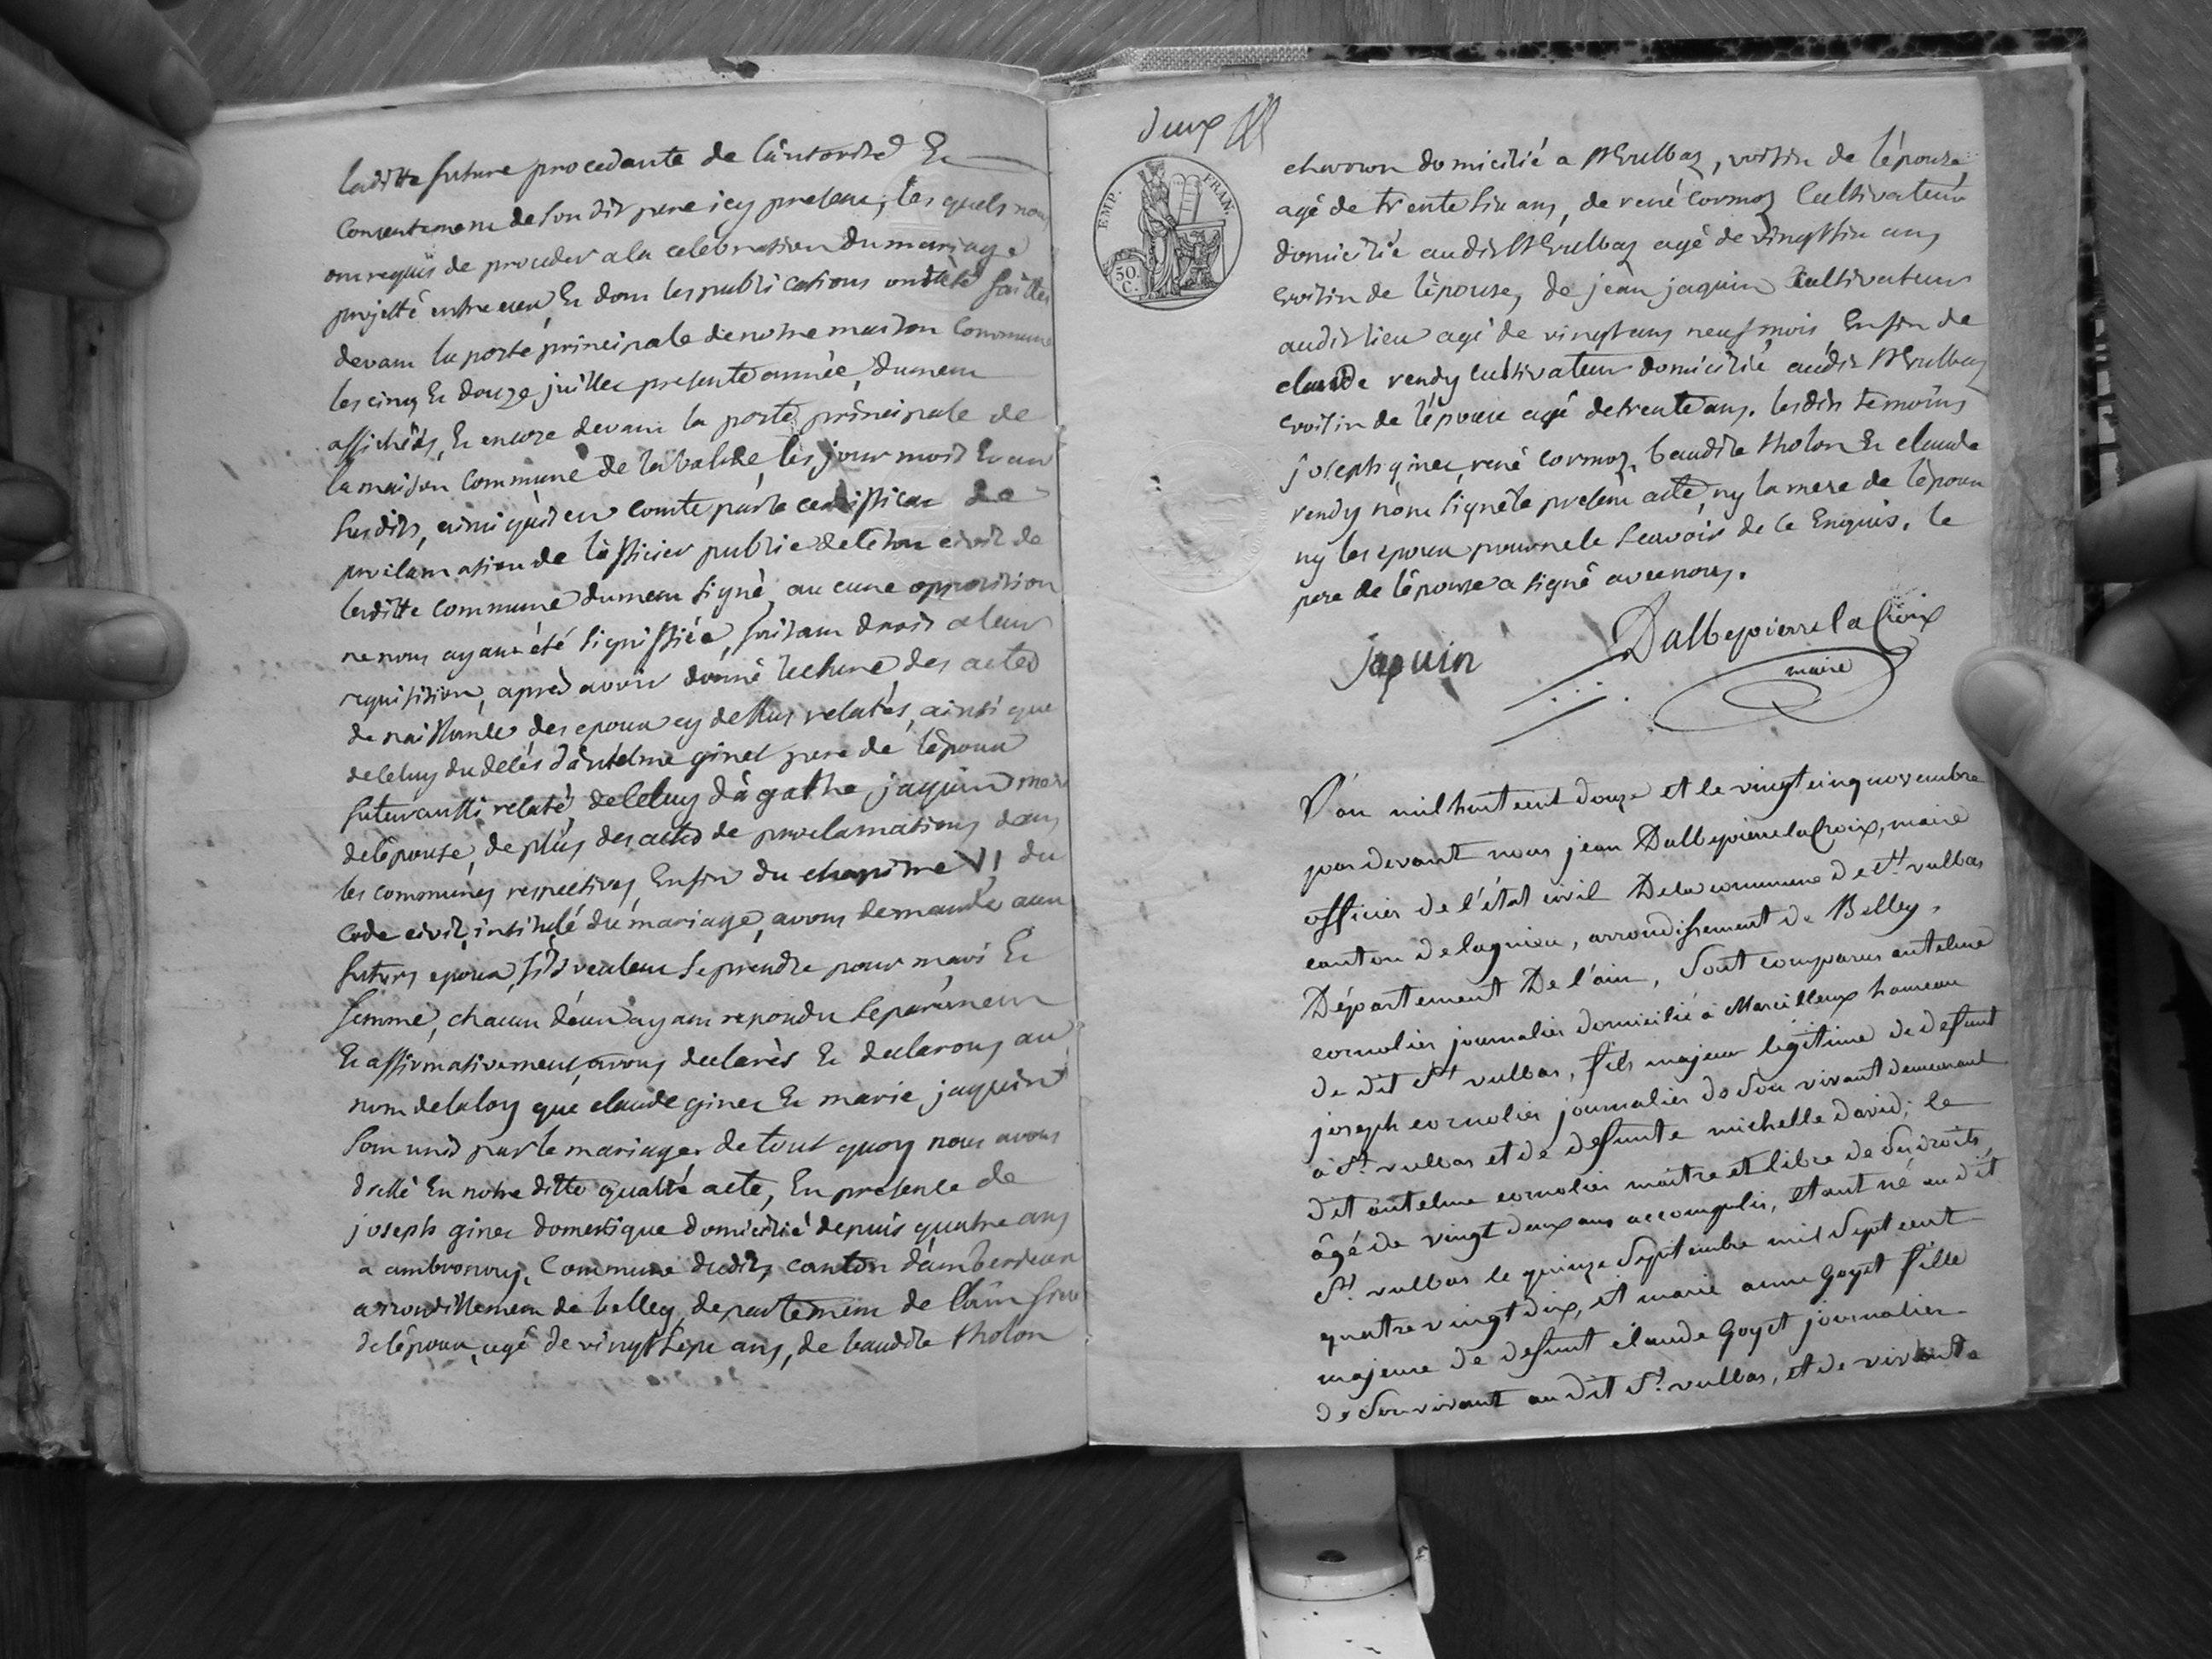 laditte future procedante de l'autorité Et
consentement de son dit pere icy present, les quels nous
ont requis de proceder a la celebration du mariage
projetté entre eux, Et dont les publications ont été faittes
devant la porte principale de notre maison commune
les cinq Et douze juillet presente année, dument
affichées, Et encore devant la porte principale de
la maison commune de la balme les jour mois Et an
susdits, ainsi qu'il en conste par le certifficat de
proclamation de l'officier public de l'état civil de
laditte commune dument signé, aucune opposition
ne nous ayant été signiffiée, faisant droit a leur
requisition, après avoir donné lecture des actes
de naissance des epoux cy dessus relatés, ainsi que
de celuy du décès d'antelme ginet pere de l'époux
futur aussi relaté, de celuy d'agathe jaquin mere
de l'épouse, de plus des actes de proclamations dans
les communes respectives, Enfin du chapitre VI du
code civil, intitulé du mariage, avons demandé aux
futurs epoux, s'ils veulent se prendre pour mari Et
femme, chacun d'eux ayant repondu separement
Et affirmativement, avons declarés Et declarons au
nom de la loy que claude ginet Et marie jaquin
sont unis par le mariage, de tout quoy nous avons
dressé En notre ditte qualité acte, En presence de
joseph ginet domestique domicilié depuis quatre ans
a ambronay, Commune dudit, canton d'amberieux
arrondissement de belley, departement de l'ain frere
de l'époux, agé de vingt sept ans, de baudile tholon
deux
EMP. FRAN.
50. C.
charron domicilié a St Vulbaz, voisin de l'épouse
agé de trente six ans, de rené cormoz Cultivateur
domicilié audit St Vulbaz agé de vingt six ans
voisin de l'épouse, de jean jaquin Cultivateur
audit lieu agé de vingt ans neuf mois, Enfin de
claude rendy cultivateur domicilié audit St Vulbaz
voisin de l'épouse agé de trente ans. lesdits temoins
joseph ginet, rené cormoz, baudile tholon Et claude
rendy n'ont signé le present acte, ny la mere de l'époux
ny les epoux pour ne le scavoir de ce Enquis. le
pere de l'épouse a signé avec nous.
jaquin
Dallepierre la Croix
maire
L'an mil huit cent douze et le vingt cinq novembre
par devant nous jean Dallepierre la Croix, maire
officier de l'état civil De la commune de St. vulbas
canton de lagnieu, arrondissement de Belley,
Département De l'ain, Sont comparus antelme
cornolier journalier domicilié à Marcilleux hameau
de dit St vulbas, fils majeur legitime de defunt
joseph cornolier journalier de Son vivant demeurant
à St. vulbas et de defunte michelle david; le
dit antelme cornolier maitre et libre de Ses droits,
âgé de vingt deux ans accomplis, étant né au dit
St. vulbas le quinze Septembre mil Sept cent
quatre vingt dix, et marie anne goyet fille
majeure de defunt claude goyet journalier
de Son vivant au dit St. vulbas, et de vivante